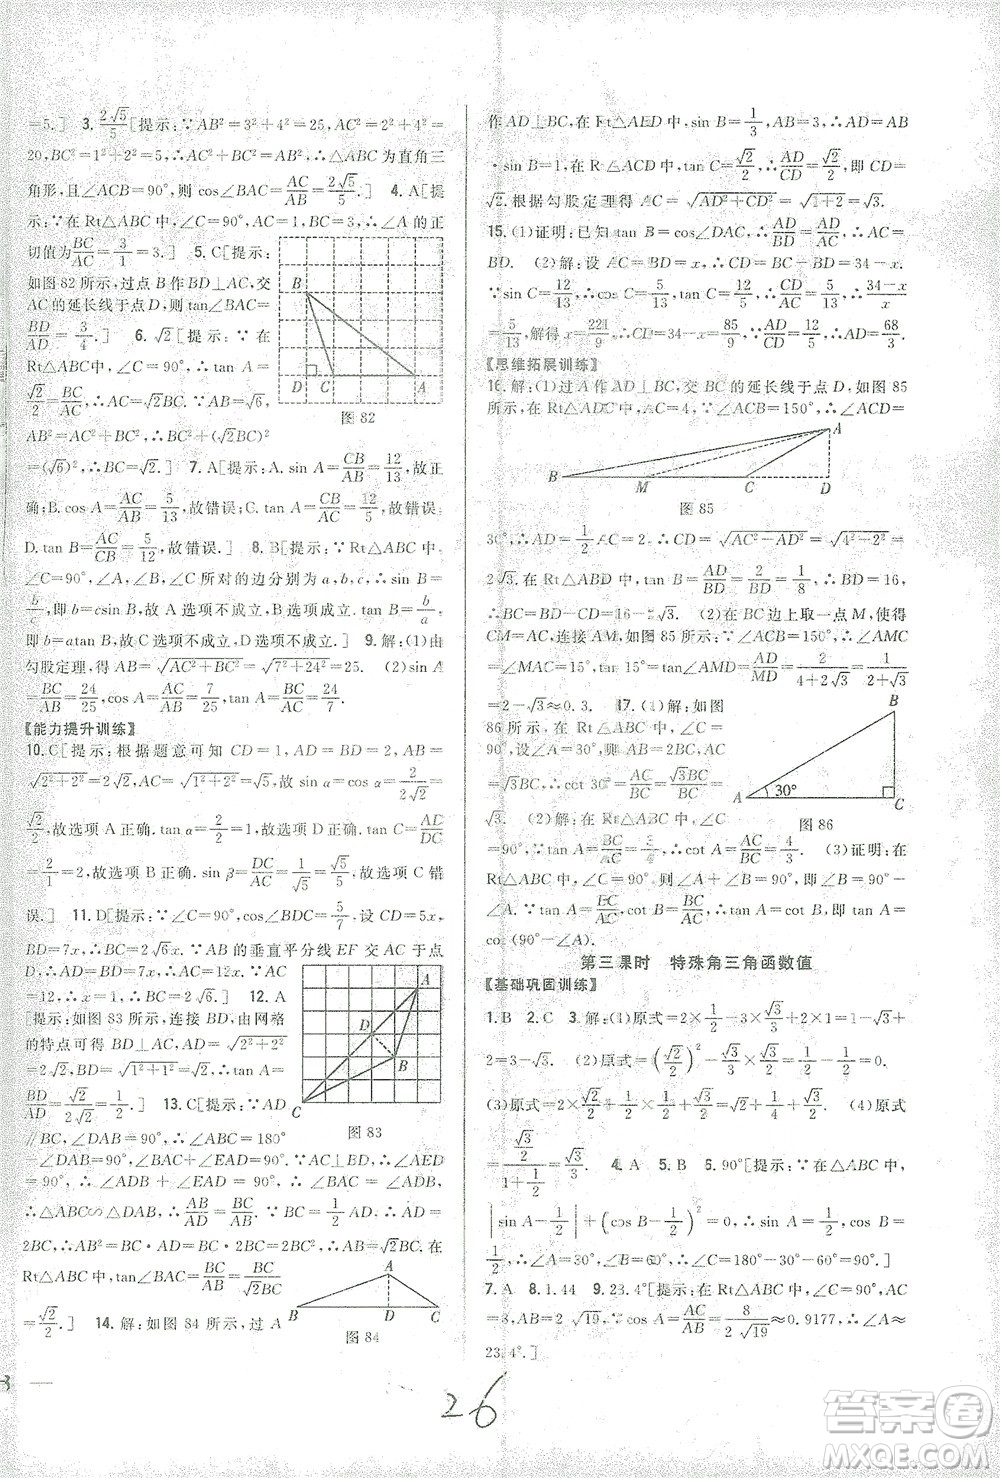 =5.] 3.2√5/5[提示:∵AB²=3²+4²=25,AC²=2²+4²=
20,BC²=1²+2²=5,∴AB²=AC²+BC²,∴△ABC为直角三
角形,且∠ACB=90°,则 cos∠BAC=AC/AB=2√5/5.] 4.A[提
示:∵在Rt△ABC中,∠C=90°,AC=1,BC=3,∴∠A的正
切值为BC/AC=3/1=3.] 5.C[提示:
如图82所示,过点B作BD⊥AC,交
AC的延长线于点D,则tan∠BAC=
BD/AD=3/4.] 6.√2[提示:∵在
Rt△ABC中,∠C=90°,∴tan A=
BC/AC=√2,∴BC=√2AC.∵AB=√6,
AB²=AC²+BC²,∴BC²+(√2BC)²
=(√6)²,∴BC=√2.] 7.A[提示:A.sin A=CB/AB=12/13,故正
确;B.cos A=AC/AB=5/13,故错误;C.tan A=CB/AC=12/5,故错误;
D.tan B=AC/CB=5/12,故错误.] 8.B[提示:∵Rt△ABC中,
∠C=90°,∠A,∠B,∠C所对的边分别为a,b,c,∴sin B=
b/c,即b=csin B,故A选项不成立,B选项成立;tan B=b/a,
即b=atan B,故C选项不成立,D选项不成立.] 9.解:(1)由
勾股定理,得AB=√AC²+BC²=√7²+24²=25. (2)sin A
=BC/AB=24/25,cos A=AC/AB=7/25,tan A=BC/AC=24/7.
【能力提升训练】
10.C[提示:根据题意可知CD=1,AD=2,AB=2.∴BC=
√2²+2²=2√2,AC=√1²+2²=√5,故sin α=cos α=2/2√2=
√2/2,故选项A正确.tan α=2/2=1,故选项D正确.tan C=AD/DC=
2/1=2,故选项B正确.sin β=DC/AC=1/√5=√5/5,故选项C错
误.] 11.D[提示:∵∠C=90°,cos∠BDC=5/7,设CD=5x,
BD=7x,∴BC=2√6x.∵AB的垂直平分线EF交AC于点
D,∴BD=AD=7x,∴AC=12x.∵AC
=12,∴x=1,∴BC=2√6.] 12.A
[提示:如图83所示,连接BD,由网格
的特点可得BD⊥AC,AD=√2²+2²
=2√2,BD=√1²+1²=√2,∴tan A=
BD/AD=√2/2√2=1/2.] 13.C[提示:∵AD
∥BC,∠DAB=90°,∴∠ABC=180°
-∠DAB=90°,∠BAC+∠EAD=90°.∵AC⊥BD,∴∠AED
=90°,∴∠ADB+∠EAD=90°,∴∠BAC=∠ADB,
∴△ABC∽△DAB,∴AB/AD=BC/AB.∵BC=1/2AD,∴AD=
2BC,∴AB²=BC·AD=BC·2BC=2BC²,∴AB=√2BC.在
Rt△ABC中,tan∠BAC=BC/AB=BC/√2BC=
√2/2.] 14.解:如图84所示,过A
图82
图83
图84
作AD⊥BC,在Rt△AED中,∵sin B=1/3,AB=3,∴AD=AB
·sin B=1.在Rt△ACD中,∵tan C=√2/2,∴AD/CD=√2/2,即CD=
√2.根据勾股定理得AC=√AD²+CD²=√1+2=√3.
15.(1)证明:已知tan B=cos∠DAC,∴AD/BD=AD/AC,∴AC=
BD. (2)解:设AC=BD=x,∵BC=34,∴DC=34-x.
∵sin C=12/13,∴cos C=5/13,在Rt△ACD中,∴DC/AC=34-x/x=
5/13,解得x=221/9,∴CD=34-x=85/9,∵AD/DC=12/5,∴AD=68/3.
【思维拓展训练】
16.解:(1)过A作AD⊥BC,交BC的延长线于点D,如图85
所示,在Rt△ADC中,AC=4,∵∠ACB=150°,∴∠ACD=
图85
30°,∴AD=1/2AC=2.CD=√AC²-AD²=√4²-2²=
2√3,在Rt△ABD中,tan B=AD/BD=2/BD=1/8,∴BD=16,
∴BC=BD-CD=16-2√3. (2)在BC边上取一点M,使得
CM=AC,连接AM,如图85所示:∵∠ACB=150°,∴∠AMC
=∠MAC=15°,tan 15°=tan∠AMD=AD/MD=2/4+2√3=1/2+√3
=2-√3≈0.3. 17.(1)解:如图
86所示,在Rt△ABC中,∠C=
90°,∵∠A=30°,∴tan A=1/√3,∴AC
=√3BC,∴cot 30°=AC/BC=√3BC/BC=
√3. (2)解:在Rt△ABC中,∵∠C
=90°,∵tan A=BC/AC=3/4,∴cot A=AC/BC=4/3. (3)证明:在
Rt△ABC中,∵∠C=90°,tan A=BC/AC,cot B=BC/AC,∴cot B=
cot(90°-∠A)=tan A.
30°
图86
第三课时 特殊角三角函数值
【基础巩固训练】
1.B 2.C 3.解:(1)原式=2×1/2-3×√3/2+2×1=1-3√3/2+
2=3-3√3/2. (2)原式=(√2/2)²-√3/2×√3/3=1/2-1/2=0.
(3)原式=2×√2/2-1/2×√3/2×√3=√2-3/4. (4)原式=
√3/2/1/2+1=√3/3. 4.A 5.B 6.90°[提示:∵在△ABC中,
|sin A-1/2|+(cos B-1/2)²=0,∴sin A=1/2,cos B=
1/2,∴∠A=30°,∠B=60°,∴∠C=180°-30°-60°=90°.]
7.A 8.1.44 9.23.4°[提示:在Rt△ABC中,∠C=90°,AC
=8,∴cos A=AC/AB=8/2√19≈0.9177,∴∠A≈
23.4°.]
26
答案圈
MXQE.COM